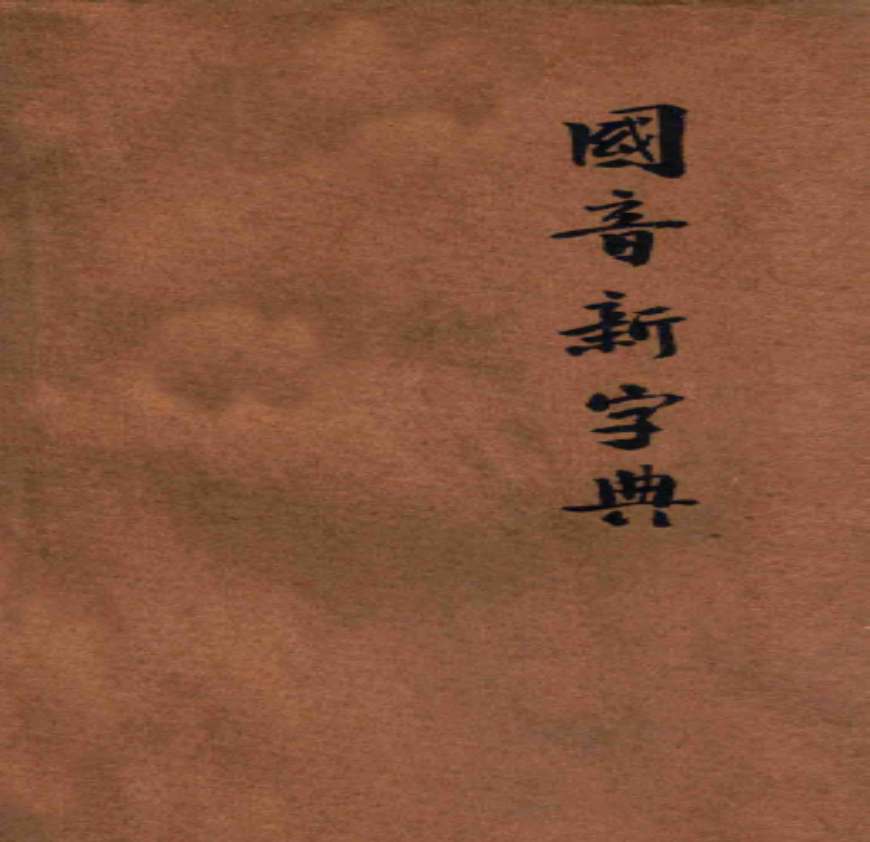 國音新字典